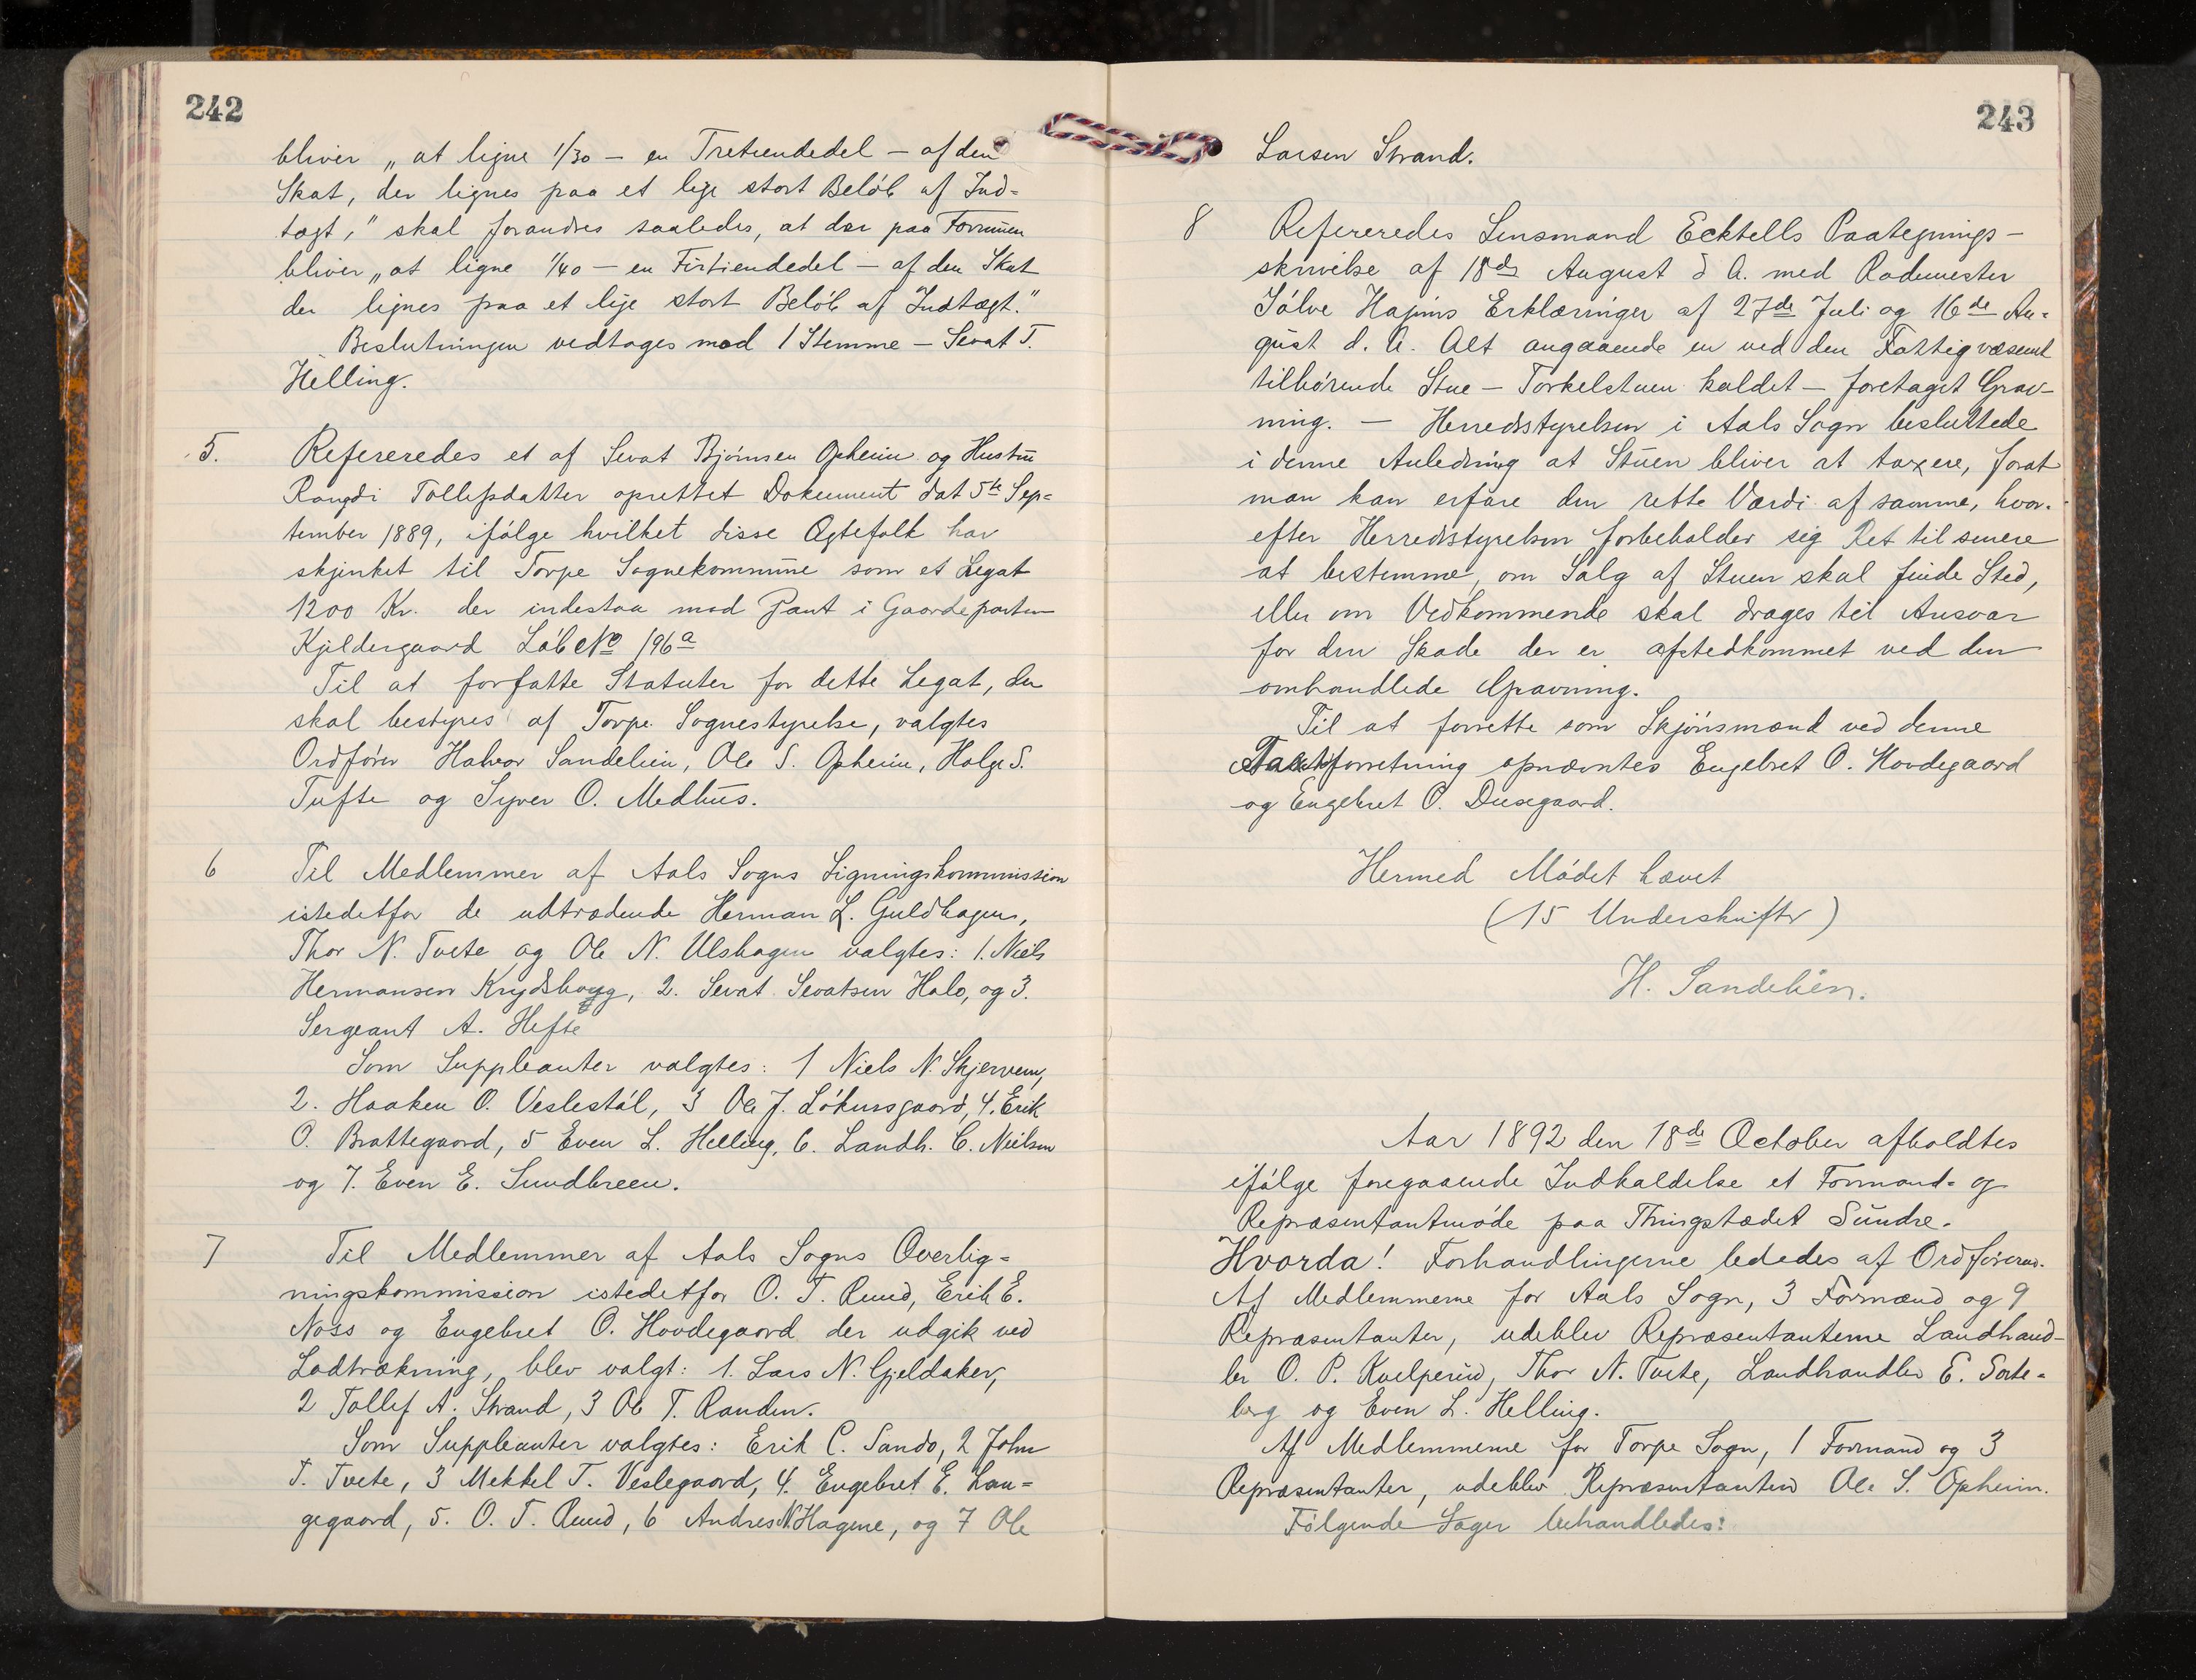 242
bliver „at ligne 1/30 — en Tretiendedel — af den
Skat, der lignes paa et lige stort Beløb af Ind-
tægt," skal forandres saaledes, at der paa Formuen
bliver „at ligne 1/40 — en Firtiendedel — af den Skat
der lignes paa et lige stort Beløb af Indtægt."
Beslutningen vedtages mod 1 Stemme — Sevat T.
Helling.
5. Refereredes et af Sevat Bjørnsen Opheim og Hustru
Rangdi Tollefsdatter oprettet Dokument dat 5te Sep-
tember 1889, ifølge hvilket disse Ægtefolk har
skjænket til Torpe Sognekommune som et Legat
1200 Kr. der indestaa mod Pant i Gaardeparten
Kjeldergaard Løb No 196a
Til at forfatte Statuter for dette Legat, der
skal bestyres af Torpe Sognestyrelse, valgtes
Ordfører Halvor Sandelien, Ole S. Opheim, Holge S.
Tufte og Syver O. Medhus.
6 Til Medlemmer af Aals Sogns Ligningskommission
istedetfor de udtrædende Herman L. Guldhagen,
Thor N. Tvete og Ole N. Ulshagen valgtes: 1. Niels
Hermansen Krydshaug, 2. Sevat Sevatsen Halo, og 3.
Sergeant A. Hefte
Som Suppleanter valgtes: 1 Niels N. Skjervem,
2. Haaken O. Veslestøl, 3 Ole J. Løkensgaard, 4. Erik
O. Brattegaard, 5 Even L. Helling, 6. Landh. C. Nielsen
og 7. Even E. Sundbreen.
7 Til Medlemmer af Aals Sogns Overlig-
ningskommission istedetfor O. T. Ruud, Erik E.
Noss og Engebret O. Hovdegaard der udgik ved
Lodtrækning, blev valgt: 1. Lars N. Gjeldaker,
2 Tollef A. Strand, 3 Ole T. Randen.
Som Suppleanter valgtes: Erik C. Sando, 2 John
T. Tvete, 3 Mekkel T. Veslegaard, 4. Engebret E. Lan-
gegaard, 5. O. T. Ruud, 6 Andres N. Hagene, og 7 Ole
243
Larsen Strand.
8 Refereredes Lensmand Ecktells Paategnings-
skrivelse af 18de August d A. med Rodemester
Sølve Erklæringer af 27de Juli og 16de Au-
gust d. A. Alt angaaende en ved den Fattigvæsenet
tilhørende Stue — Torkelstuen kaldet — foretaget Grav-
ning. — Herredsstyrelsen i Aals Sogn besluttede
i denne Anledning at Stuen bliver at taxere, forat
man kan erfare den rette Værdi af samme, hvor-
efter Herredsstyrelsen forbeholder sig Ret til senere
at bestemme, om Salg af Stuen skal finde Sted,
eller om Vedkommende skal drages til Ansvar
for den Skade der er afstedkommet ved den
omhandlede Gravning.
Til at forrette som Skjønsmænd ved denne
Taxtforretning opnævntes Engebret O. Hovdegaard
og Engebret O. Dusegaard.
Hermed Mødet hævet
(15 Underskrifter)
H. Sandelien.
Aar 1892 den 18de October afholdtes
ifølge foregaaende Indkaldelse et Formand- og
Repræsentantmøde paa Thingstædet Sundre.
Hvorda! Forhandlingerne lededes af Ordføreren.
Af Medlemmerne for Aals Sogn, 3 Formænd og 9
Repræsentanter, udeblev Repræsentanterne Landhand-
ler O. P. Kvelperud, Thor N. Tvete, Landhandler E. Sorte-
berg og Even L. Helling.
Af Medlemmerne for Torpe Sogn, 1 Formand og 3
Repræsentanter, udeblev Repræsentanten Ole S. Opheim.
Følgende Sager behandledes: